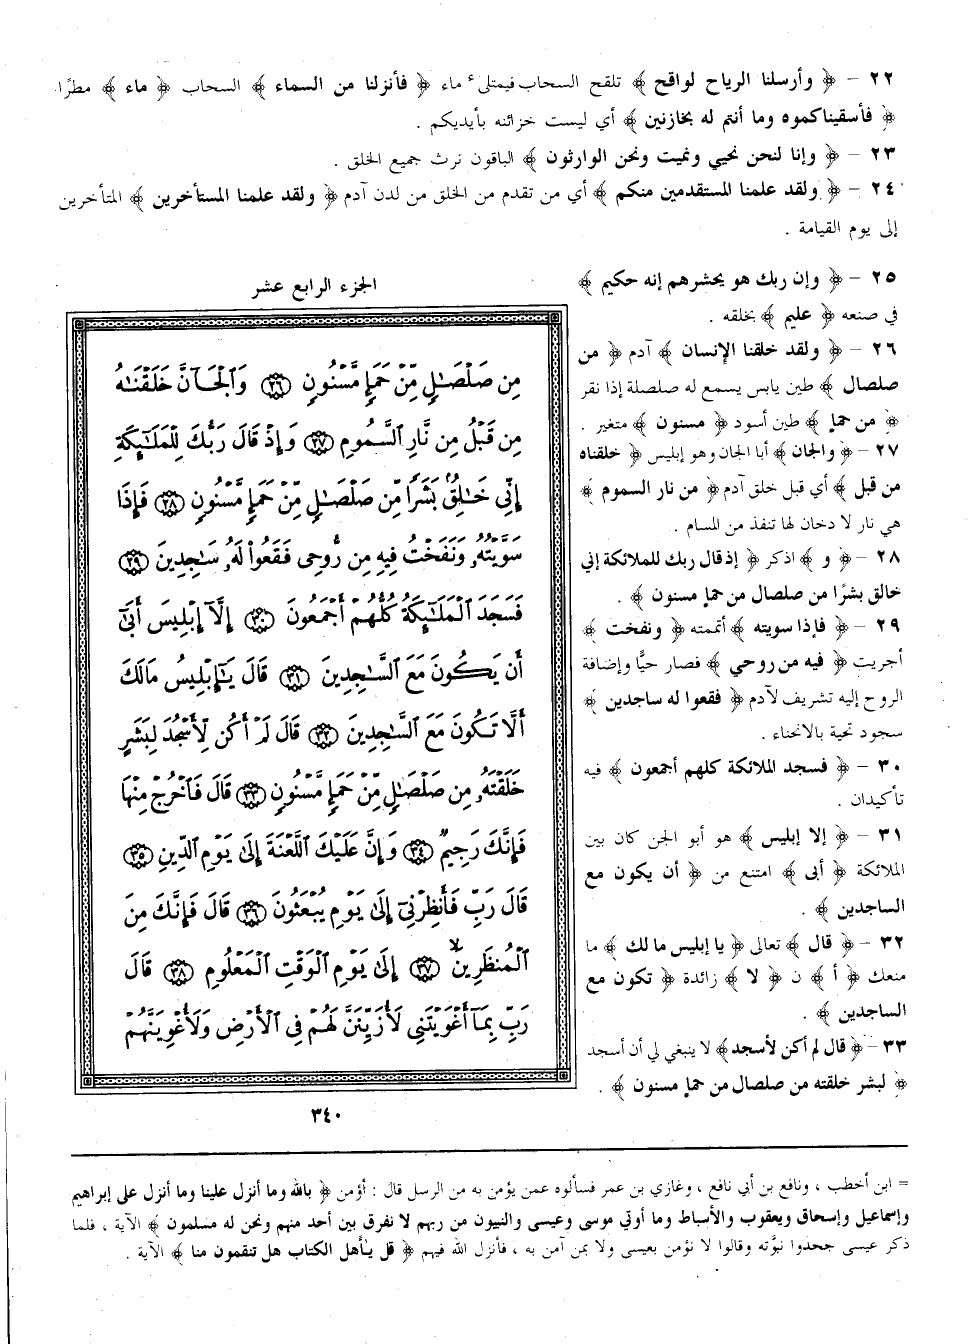 ٢٢ – ﴿ وأرسلنا الرياح لواقح ﴾ تلقح السحاب فيمتلىء ماء ﴿ فأنزلنا من السماء ﴾ السحاب ﴿ ماء ﴾ مطرًا
﴿ فأسقيناكموه وما أنتم له بخازنين ﴾ أي ليست خزائنه بأيديكم .
٢٣ – ﴿ وإنا لنحن نحيي ونميت ونحن الوارثون ﴾ الباقون نرث جميع الخلق .
٢٤ – ﴿ ولقد علمنا المستقدمين منكم ﴾ أي من تقدم من الخلق من لدن آدم ﴿ ولقد علمنا المستأخرين ﴾ المتأخرين
إلى يوم القيامة .
٢٥ – ﴿ وإن ربك هو يحشرهم إنه حكيم ﴾
في صنعه ﴿ عليم ﴾ بخلقه .
٢٦ – ﴿ ولقد خلقنا الإنسان ﴾ آدم ﴿ من
صلصال ﴾ طين يابس يسمع له صلصلة إذا نقر
﴿ من حمإ ﴾ طين أسود ﴿ مسنون ﴾ متغير .
٢٧ – ﴿ والجان ﴾ أبا الجان وهو إبليس ﴿ خلقناه
من قبل ﴾ أي قبل خلق آدم ﴿ من نار السموم ﴾
هي نار لا دخان لها تنفذ من المسام .
٢٨ – ﴿ و ﴾ اذكر ﴿ إذ قال ربك للملائكة إني
خالق بشرًا من صلصال من حمإ مسنون ﴾ .
٢٩ – ﴿ فإذا سويته ﴾ أتممته ﴿ ونفخت ﴾
أجريت ﴿ فيه من روحي ﴾ فصار حيًّا وإضافة
الروح إليه تشريف لآدم ﴿ فقعوا له ساجدين ﴾
سجود تحية بالانحناء .
٣٠ – ﴿ فسجد الملائكة كلهم أجمعون ﴾ فيه
تأكيدان .
٣١ – ﴿ إلا إبليس ﴾ هو أبو الجن كان بين
الملائكة ﴿ أبى ﴾ امتنع من ﴿ أن يكون مع
الساجدين ﴾ .
٣٢ – ﴿ قال ﴾ تعالى ﴿ يا إبليس ما لك ﴾ ما
منعك ﴿ أ ﴾ ن ﴿ لا ﴾ زائدة ﴿ تكون مع
الساجدين ﴾ .
٣٣ – ﴿ قال لم أكن لأسجد ﴾ لا ينبغي لي أن أسجد
﴿ لبشر خلقته من صلصال من حمإ مسنون ﴾ .
الجزء الرابع عشر
مِن صَلْصَٰلٍ مِّنْ حَمَإٍ مَّسْنُونٍ ٢٦ وَالْجَآنَّ خَلَقْنَٰهُ
مِن قَبْلُ مِن نَّارِ السَّمُومِ ٢٧ وَإِذْ قَالَ رَبُّكَ لِلْمَلَٰٓئِكَةِ
إِنِّي خَٰلِقٌۢ بَشَرًا مِّن صَلْصَٰلٍ مِّنْ حَمَإٍ مَّسْنُونٍ ٢٨ فَإِذَا
سَوَّيْتُهُۥ وَنَفَخْتُ فِيهِ مِن رُّوحِى فَقَعُوا۟ لَهُۥ سَٰجِدِينَ ٢٩
فَسَجَدَ الْمَلَٰٓئِكَةُ كُلُّهُمْ أَجْمَعُونَ ٣٠ إِلَّآ إِبْلِيسَ أَبَىٰٓ
أَن يَكُونَ مَعَ السَّٰجِدِينَ ٣١ قَالَ يَٰٓإِبْلِيسُ مَالَكَ
أَلَّا تَكُونَ مَعَ السَّٰجِدِينَ ٣٢ قَالَ لَمْ أَكُن لِّأَسْجُدَ لِبَشَرٍ
خَلَقْتَهُۥ مِن صَلْصَٰلٍ مِّنْ حَمَإٍ مَّسْنُونٍ ٣٣ قَالَ فَاخْرُجْ مِنْهَا
فَإِنَّكَ رَجِيمٌ ٣٤ وَإِنَّ عَلَيْكَ اللَّعْنَةَ إِلَىٰ يَوْمِ الدِّينِ ٣٥
قَالَ رَبِّ فَأَنظِرْنِىٓ إِلَىٰ يَوْمِ يُبْعَثُونَ ٣٦ قَالَ فَإِنَّكَ مِنَ
الْمُنظَرِينَ ٣٧ إِلَىٰ يَوْمِ الْوَقْتِ الْمَعْلُومِ ٣٨ قَالَ
رَبِّ بِمَآ أَغْوَيْتَنِى لَأُزَيِّنَنَّ لَهُمْ فِى الْأَرْضِ وَلَأُغْوِيَنَّهُمْ
٣٤٠
= ابن أخطب ، ونافع بن أبي نافع ، وغازي بن عمر فسألوه عمن يؤمن به من الرسل قال : أؤمن ﴿ بالله وما أنزل علينا وما أنزل على إبراهيم
وإسماعيل وإسحاق ويعقوب والأسباط وما أوتي موسى وعيسى والنبيون من ربهم لا نفرق بين أحد منهم ونحن له مسلمون ﴾ الآية ، فلما
ذكر عيسى جحدوا نبوَّته وقالوا لا نؤمن بعيسى ولا بمن آمن به ، فأنزل الله فيهم ﴿ قل يأهل الكتاب هل تنقمون منا ﴾ الآية .